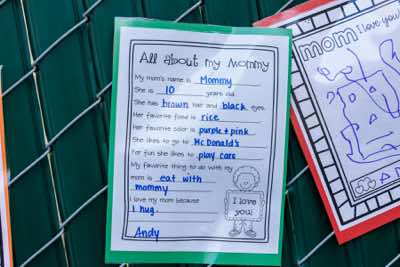 All about my Mommy
My mom's name is Mommy
She is 10 years old.
She has brown hair and black eyes.
Her favorite food is rice
Her favorite color is purple + pink
She likes to go to McDonald's
For fun she likes to play cars
My favorite thing to do with my
mom is eat with
mommy
I love my mom because
I hug.
I love
you!
Andy
mom I love you